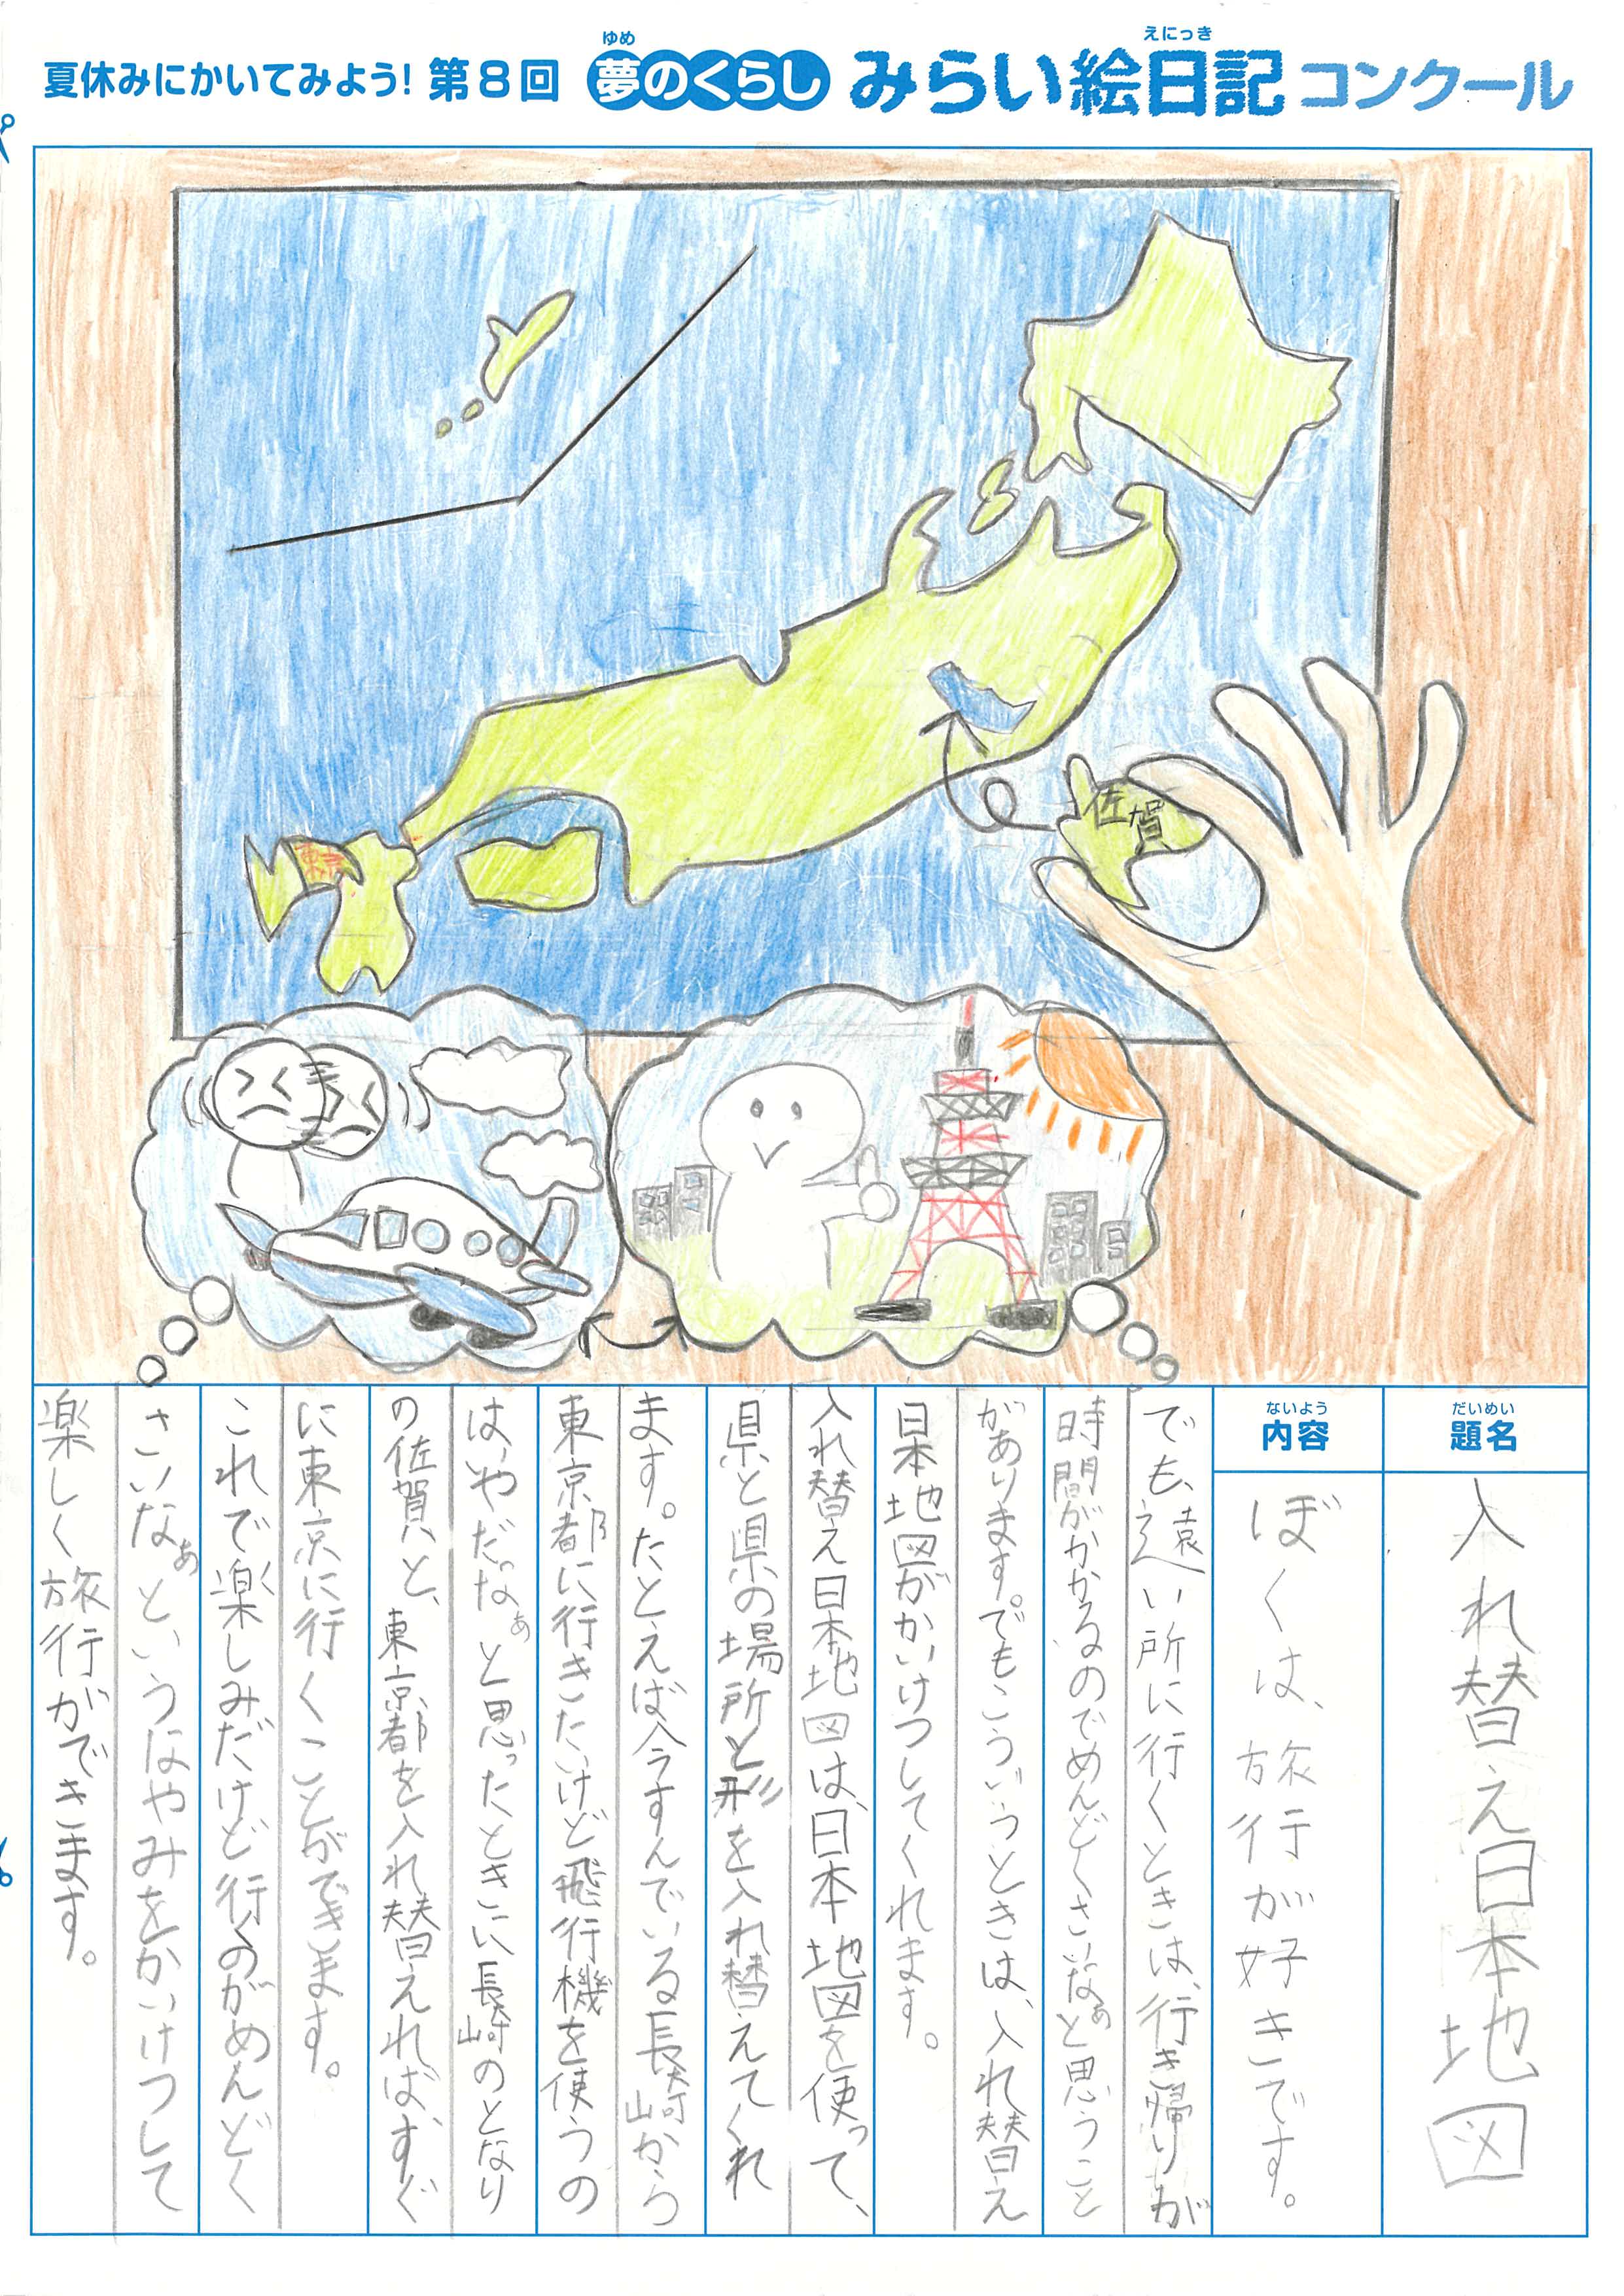 夏休みにかいてみよう! 第8回 夢のくらし みらい絵日記 コンクール
ゆめ
えにっき
佐賀
東京
だいめい
題名
入れ替え日本地図
ないよう
内容
ぼくは、旅行が好きです。
でも、遠い所に行くときは、行き帰りが
時間がかかるのでめんどくさいなぁと思うこと
があります。でもこういうときは、入れ替え
日本地図がかいけつしてくれます。
入れ替え日本地図は、日本地図を使って、
県と県の場所と形を入れ替えてくれ
ます。たとえば今すんでいる長崎から
東京都に行きたいけど飛行機を使うの
はいやだなぁと思ったときに長崎のとなり
の佐賀と、東京都を入れ替えれば、すぐ
に東京に行くことができます。
これで楽しみだけど行くのがめんどく
さいなぁというなやみをかいけつして
楽しく旅行ができます。